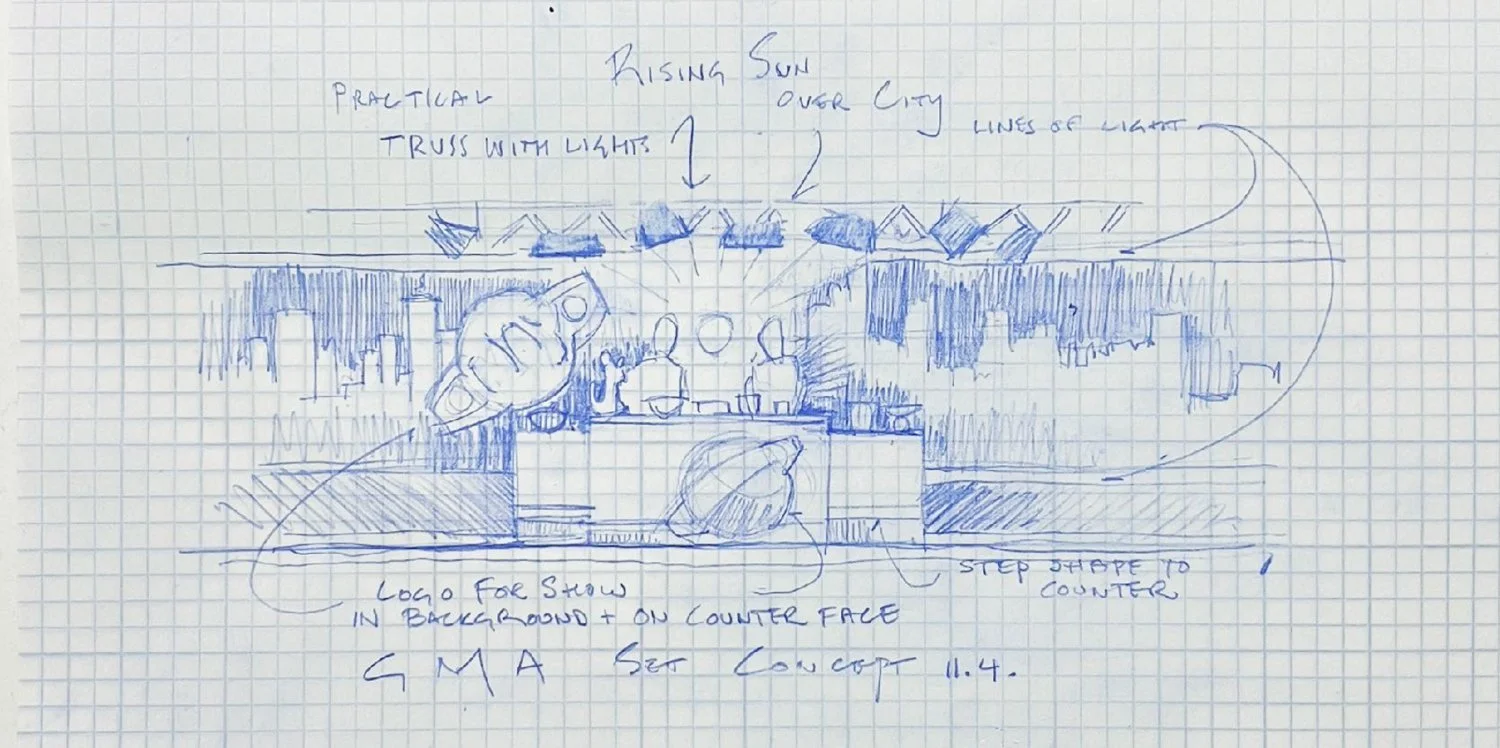 RISING SUN
OVER CITY
PRACTICAL
TRUSS WITH LIGHTS
LINES OF LIGHT
STEP SHAPE TO
COUNTER
LOGO FOR SHOW
IN BACKGROUND + ON COUNTER FACE
GMA SET CONCEPT 11.4.